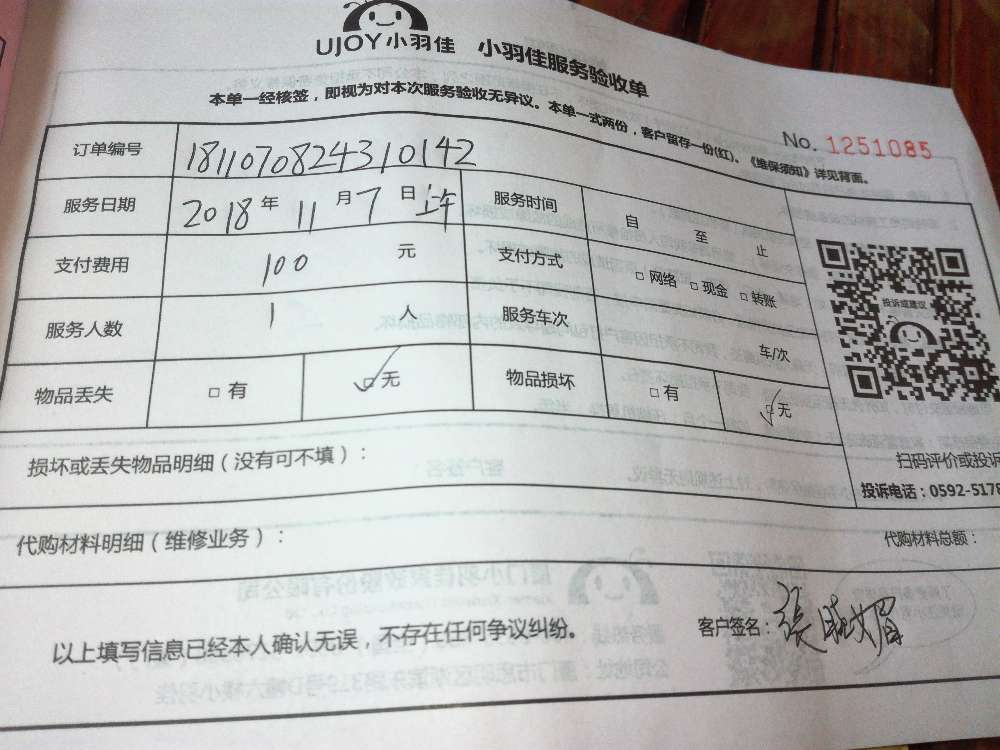 UJOY小羽佳 小羽佳服务验收单
本单一经核签，即视为对本次服务验收无异议。本单一式两份，客户留存一份(红)。《维保须知》详见背面。
No. 1251085
订单编号 181107082431 0142
服务日期 2018 年 11 月 7 日 上午 服务时间 自 至 止
支付费用 100 元 支付方式 □ 网络 □ 现金 □ 转账
服务人数 1 人 服务车次 车/次
物品丢失 □ 有 □ 无 物品损坏 □ 有 □ 无
投诉或建议
扫码评价或投诉
投诉电话：0592-5178
损坏或丢失物品明细（没有可不填）：
代购材料明细（维修业务）： 代购材料总额：
以上填写信息已经本人确认无误，不存在任何争议纠纷。 客户签名：